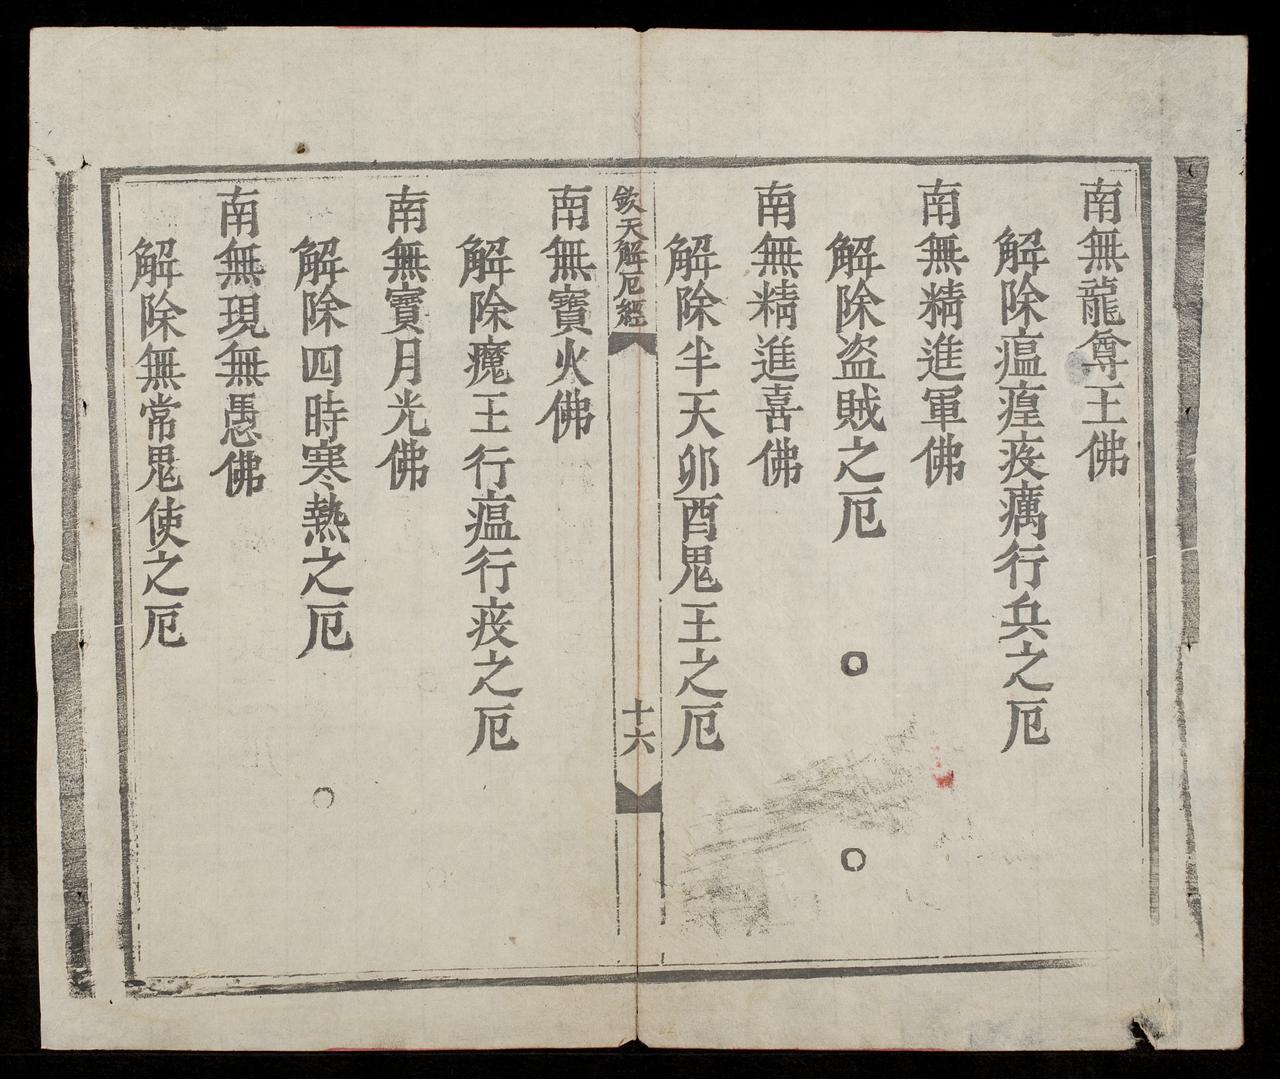 南無龍尊王佛
解除瘟瘟疫癘行兵之厄
南無精進軍佛
解除盗賊之厄
南無精進喜佛
解除半天卯酉鬼王之厄
欽天解厄經
十六
南無寶火佛
解除魔王行瘟行疫之厄
南無寶月光佛
解除四時寒熱之厄
南無現無愚佛
解除無常鬼使之厄